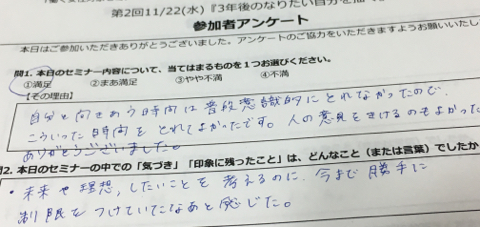 第2回11/22(水)『3年後のなりたい自分を描
参加者アンケート
本日はご参加いただきありがとうございました。アンケートのご協力をいただきますようお願いいたし
問1. 本日のセミナー内容について、当てはまるものを1つお選びください。
①満足 ②まあ満足 ③やや不満 ④不満
【その理由】
自分と向きあう時間は普段意識的にとれなかったので、
こういった時間をとれてよかったです。人の意見をきけるのもよかった
ありがとうございました。
問2. 本日のセミナーの中での「気づき」「印象に残ったこと」は、どんなこと（または言葉）でしたか
・未来や理想，したいことを考えるのに，今まで勝手に
制限をつけていたなあと感じた。